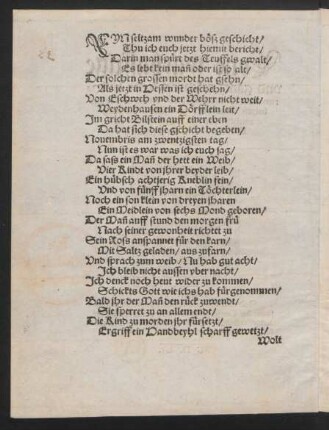 EYN seltzam wunder böß geschicht/
Thu ich euch jetzt hiemit bericht/
Darin man spürt des Teuffels gwalt/
Es lebt kein mañ oder ist so alt/
Der solchen grossen mordt hat gsehn/
Als jetzt in Hessen ist geschehn/
Von Eschweh vnd der Wehr nicht weit/
Weydenhausen ein Dörfflein leit/
Im gricht Bilstein auff einer eben
Da hat sich diese gschicht begeben/
Nouembris am zwentzigsten tag/
Nun ist es war was ich euch sag/
Da saß ein Mañ der hett ein Weib/
Vier Kindt von jhrer beyder leib/
Ein hübsch achtjerig Kneblin sein/
Vnd von fünff jharn ein Töchterlein/
Noch ein son klein von dreyen jharen
Ein Meidlein von sechs Mond geboren/
Der Mañ auff stund den morgen frü
Nach seiner gewonheit richtet zu
Sein Roß anspannet für den karn/
Mit Saltz geladen/ aus zufarn/
Vnd sprach zum weib/ Nu hab gut acht/
Ich bleib nicht aussen vber nacht/
Ich denck noch heut wider zu kommen/
Schickts Gott wie ichs hab fürgenommen/
Bald jhr der Mañ den rück zuwendt/
Sie sperret zu an allem endt/
Die Kind zu morden jhr fürsetzt/
Ergriff ein Handbeyhl scharff gewetzt/
Wolt